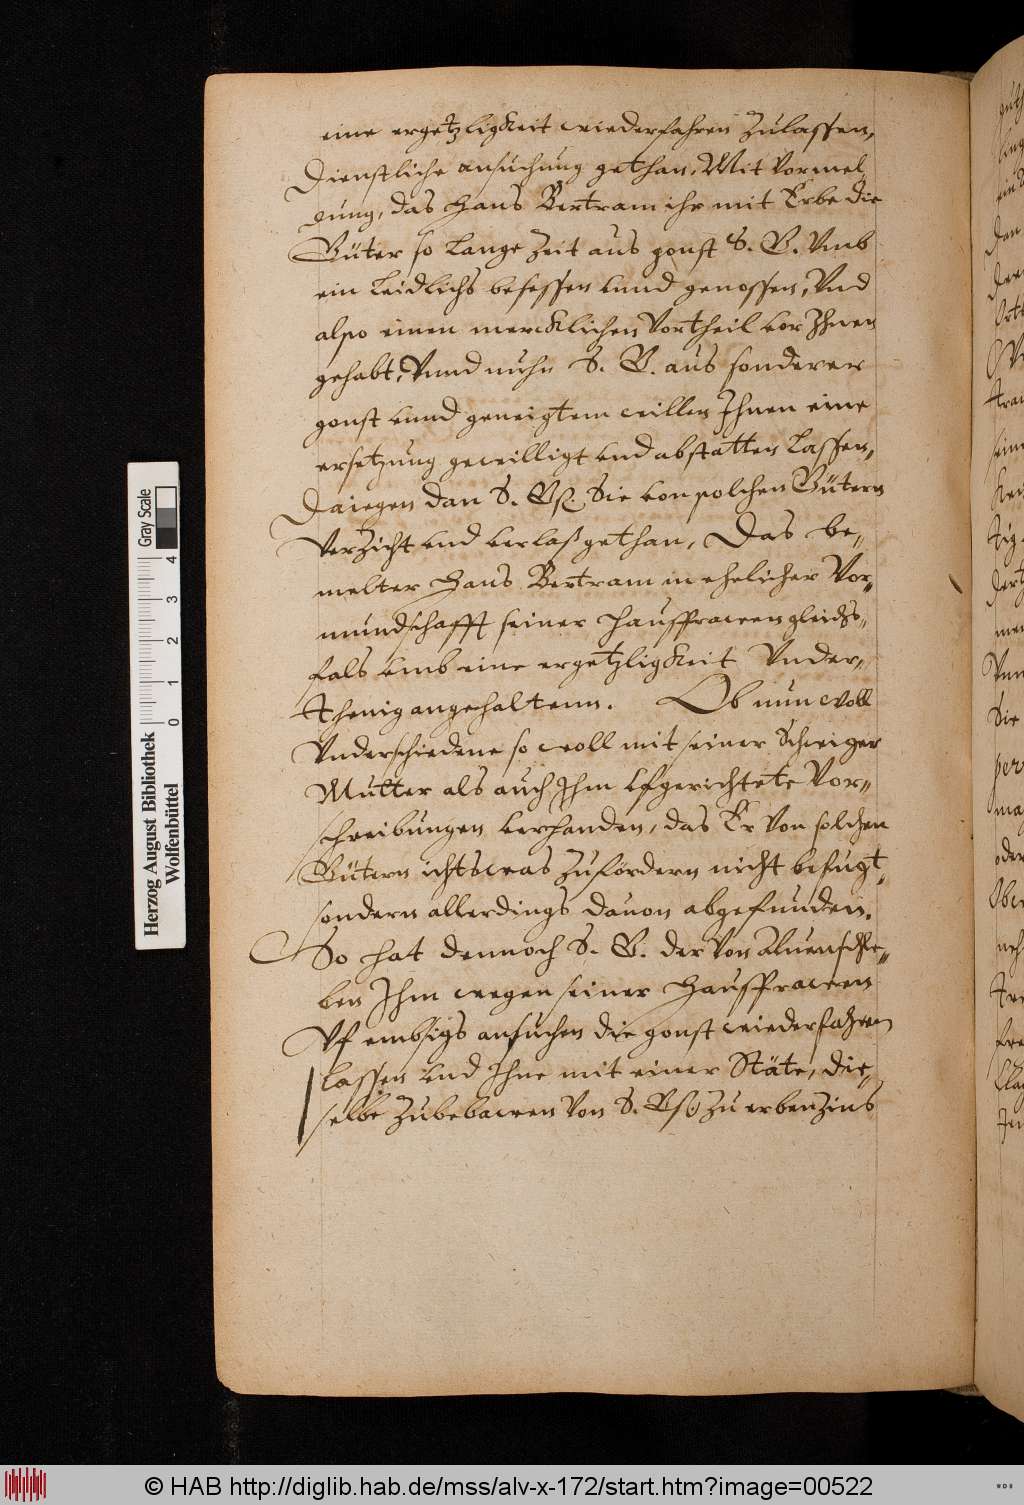 eine ergetzligkeit wiederfahren Zulassen,
Dienstliche ansuchung gethan, Mit Vormel
dung, das Hans Bertram ihr mit Erbe die
Güter so lange Zeit aus gonst S. G. Vmb
ein leidlichs besessen vnnd genossen, Vnd
also einen mercklichen Vortheil vor Ihnen
gehabt, Vnnd nuhn S. G. aus sonderer
gonst vnnd geneigtem willen Ihnen eine
ersetzung gewilligt vnd abstatten lassen,
Daiegen dan S. Sie von solchen Gütern
Verzicht vnd verlaß gethan, Das be„
melter Hans Bertram in ehelicher Vor„
mundschafft seiner Hausfrawen gleichs„
fals vmb eine ergetzligkeit Vnder„
thenig angehaltenn. Ob nun woll
Vnderschiedene so woll mit seiner Schwiger
Mutter als auch Ihm vfgerichtete Vor„
schreibungen verhanden, das Er Von solchen
Gütern ichtswas Zufördern nicht befugt,
sondern allerdings dauon abgefunden.
So hat dennoch S. G. der Von Aluenschle„
ben Ihm wegen seiner Hausfrawen
Vf embsigs ansuchen die gonst wiederfahren
lassen vnd Ihne mit einer Stäte, die„
selbe Zubebawen Von S. Zu erbenzins
Herzog August Bibliothek
Wolfenbüttel
0 1 2 3 4
Gray Scale
© HAB http://diglib.hab.de/mss/alv-x-172/start.htm?image=00522